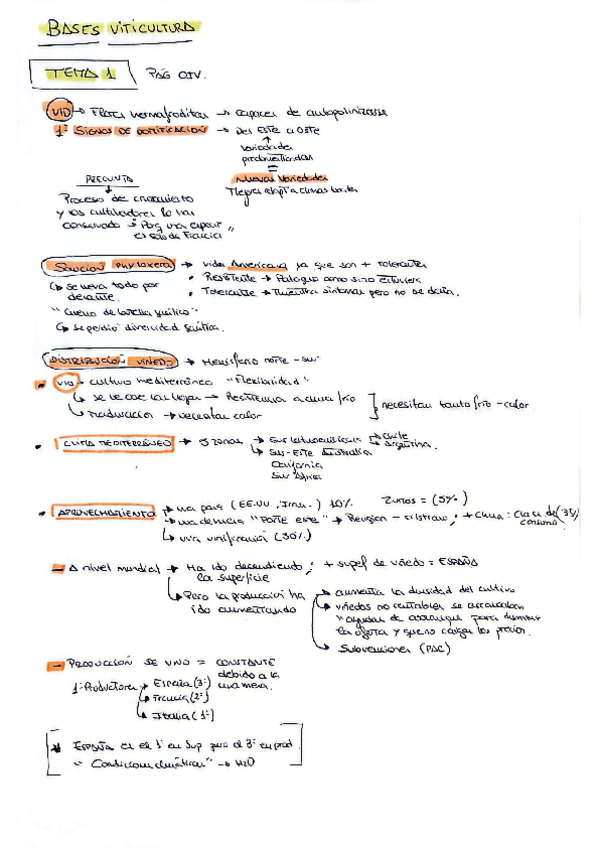 BASES VITICULTURA
TEMA 1 PÁG OIV.
VID → Flores hermafroditas → capaces de autopolinizarse
1º SIGNOS DE DOMESTICACIÓN → Del Este a Oeste
variedades
=
PREGUNTA
NUEVAS Variedades
Proceso de cruzamiento
y los cultivadores lo han
conservado →
SOLUCION PHYLOXERA → vides Americana ya que son + tolerantes
• Resistente → Patogeno como si no estuviera
↳ se lleva todo por
delante.
• Tolerante → Muestra sintomas pero no se daña.
"Cuello de botella genético"
↳ se perdió diversidad genética.
DISTRIBUCIÓN VIÑEDO → Hemisferio norte - sur
• VID → cultivo mediterráneo "Flexibilidad".
↳ se le cae las hojas → Resistencia a clima frío
necesitan tanto frío - calor
↳ maduración → necesitan calor
• CLIMA MEDITERRÁNEO → 5 zonas → Sur latinoamericano → Chile
Argentina.
↳ Sur-Este Australia
California
Sur África
• APROVECHAMIENTO → uva pasa (EE.UU, ) 10% Zumos = (5%)
→ uva de mesa → Religion - cristiano; + China:
consumo
↳ uva vinificación (50%)
- A nivel mundial → Ha ido descendiendo; + superf de viñedo = ESPAÑA
la superficie
→ aumenta la densidad del cultivo
↳ Pero la producción ha
ido aumentando
→ viñedos no rentables se arrancaban
"ayudas de arranque para disminuir
la oferta y que no caigan los precios.
↳ Subvenciones (PAC)
- PRODUCCIÓN SE UVA = CONSTANTE
debido a la
uva mesa.
1º Productores → España (3º)
↳ Francia (2º)
↳ Italia (1º)
* ESPAÑA es el 1º en Sup pero el 3º en prod
"Condiciones climáticas" → H2O